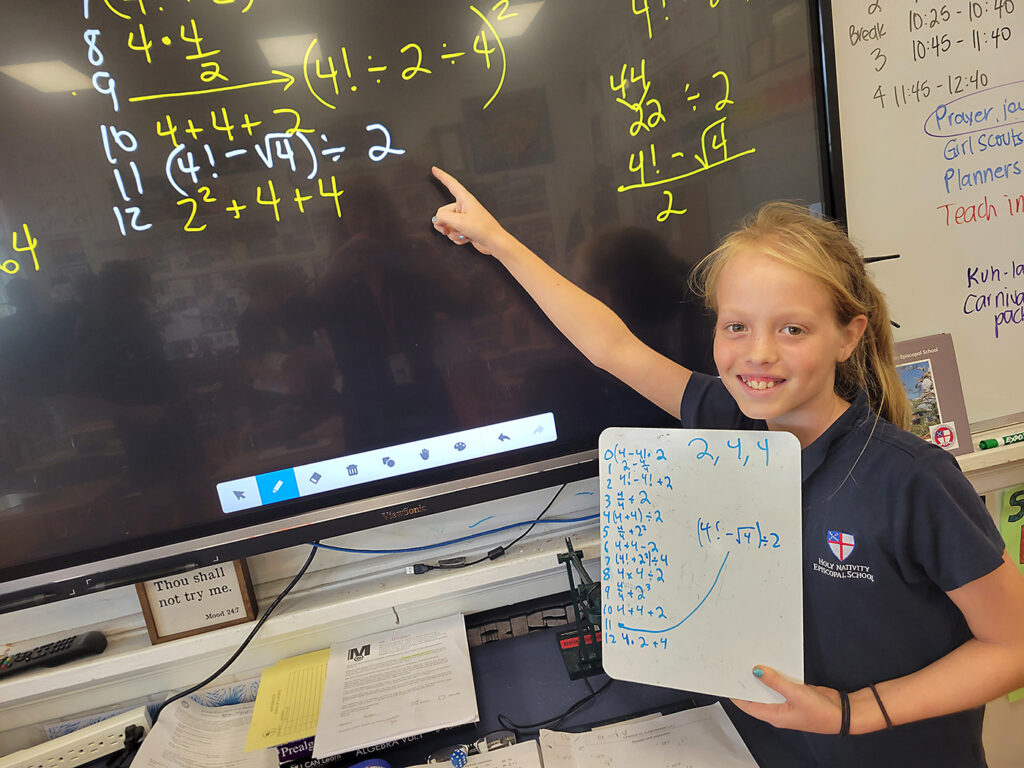 8 4 · 4/2
9 → (4! ÷ 2 ÷ 4)²
10 4 + 4 + 2
11 (4! − √4) ÷ 2
12 2² + 4 + 4
64
44
22 ÷ 2
4! − √4
2
ViewSonic
2
Break 10:25 - 10:40
3 10:45 - 11:40
4 11:45 - 12:40
Prayer, jou
Girl Scouts
Planners
Teach in
Kuh-la
Carniva
pack
Episcopal School
EXPO
2, 4, 4
0 (4-4)·2
1 2 - 4/4
2 4! - 4! + 2
3 4/4 + 2
4 (4+4) ÷ 2
5 4/4 + 2²
6 4 + 4 - 2
7 (4! + 2²) ÷ 4
8 4 × 4 ÷ 2
9 4/4 + 2³
10 4 + 4 + 2
11
12 4 · 2 + 4
(4! - √4) ÷ 2
Holy Nativity
Episcopal School
Thou shall
not try me.
Mood 24:7
M
Prealg
I Can Learn
Algebra